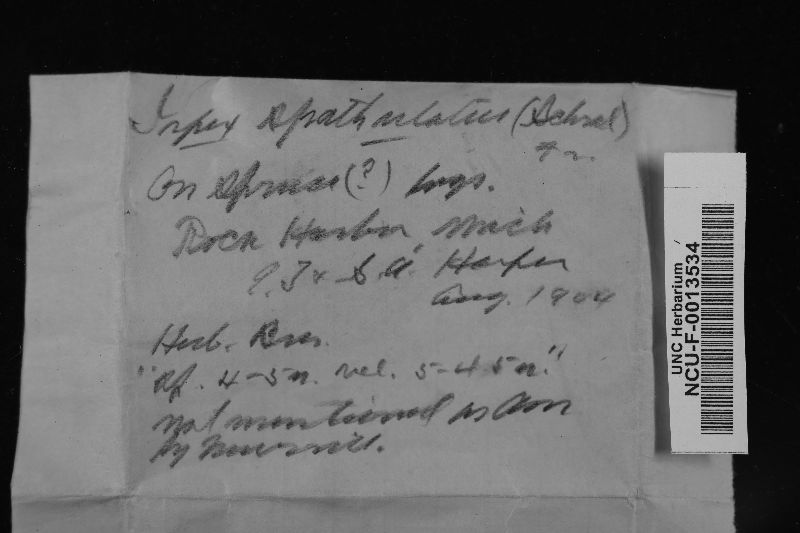 Irpex spathulatus (Schrad)
Fr.
On Spruce (?) logs.
Rock Harbor Mich
E. T. & S. A. Harper
Aug. 1904
Herb. Bres.
"Sp. 4-5u. vel. 5-4.5u."
not mentioned as Am
by Murrill.
UNC Herbarium
NCU-F-0013534